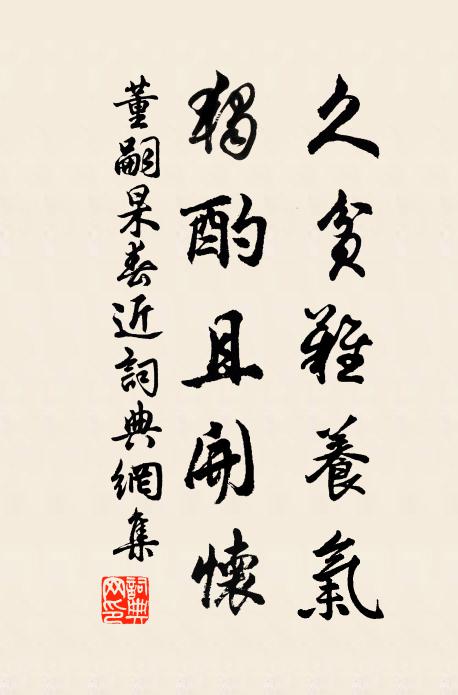 久貧難養氣
獨酌且開懷
董嗣杲春近詞典網集
詞典網印